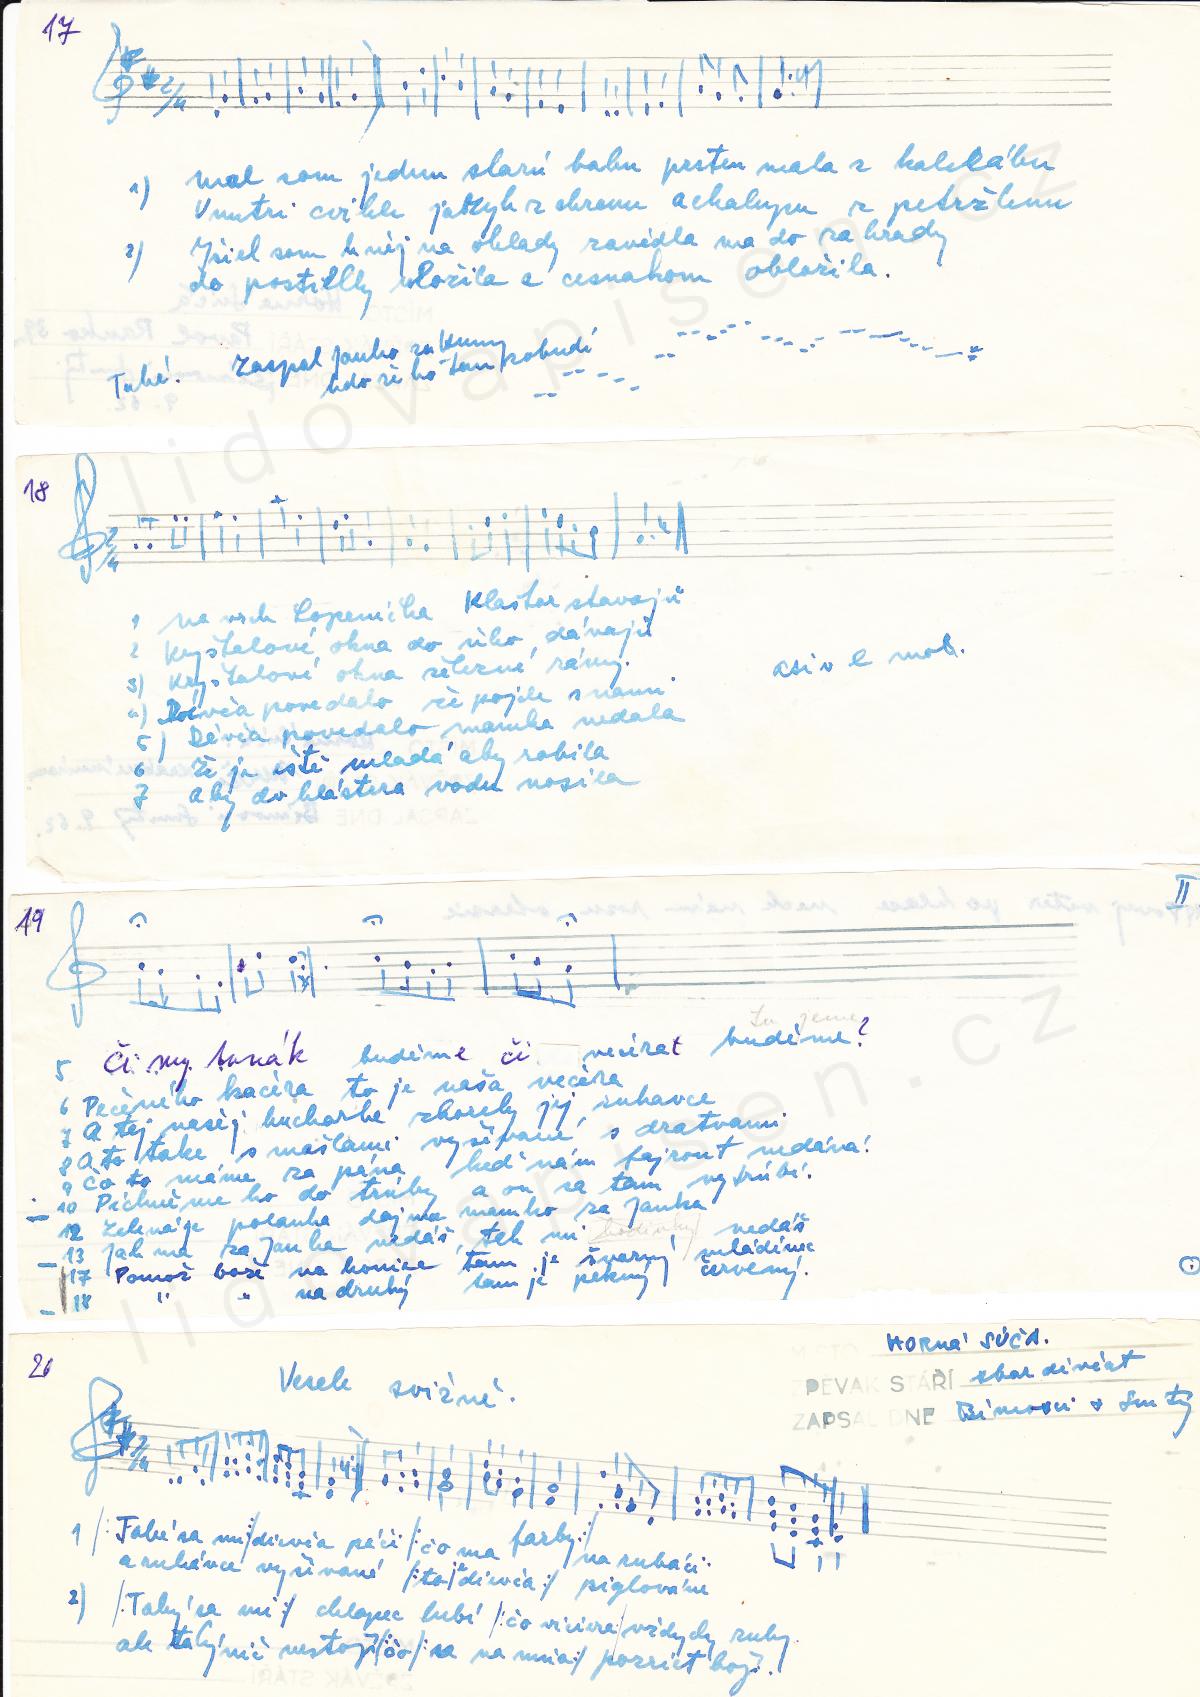 17
2/4
1) mal som jednu starú babu prsten mala z kalerábu
Vnutri cvikle jazyk z chrenu a chalupu z petržlenu
2) Išiel som k nej na ohlady zavédla ma do zahrady
do postelky uložila a cesnakom obložila.
Také. Zaspal Janko zakuny pobudí
kdo že ho tam
18
2/4
1 na vrch Lopeníčka Klaštor stavajú
2 Kryštalové okna do ního dávajú
3) Kryštalové okna železné rámy.
4) Dévča povedalo že pojde s nami.
5) Dévča povedalo mamka nedala
6 že je eště mladá aby robila
7 aby do kláštera vodu nosila
asi v e mol.
19
II
tu jeme
5 Či my tonák budéme či večerat budéme?
6 Pečeného kačéra to je naša večera
7 A tej našéj kucharke zhorely jej rukavce
8 A to také s mašlami vyšívané s dratvami
9 Čo to máme za pána keď nám fajront nedáva!
10 Pichnéme ho do trúby a on sa tam vytrúbí.
12 Zelená je polanka daj ma mamko za Janka
13 Jak ma za Janka nedáš, tek mi hodinky nedáš
17 Pomož bože na konice tam je švarný mládénec
18 " " na druhý tam je pěkný červený.
20
Vesele svižně.
HORNÁ SÚČA.
ZPĚVÁK STÁŘÍ zbor dievčat
ZAPSAL DNE Bímovi + Smutý
2/4
1 /: Také sa mi / dievča páči /: čo ma farby :/ na rubáči
a rukávce vyšívané /: to dievča :/ piglováne
2) /: Taký sa mi :/ chlapec lubí /: čo viciera / vždycky zuby.
ale taký nič nestojí /: čo / sa na mňa :/ pozriet bojí.
lidovapisen.cz
lidovapisen.cz